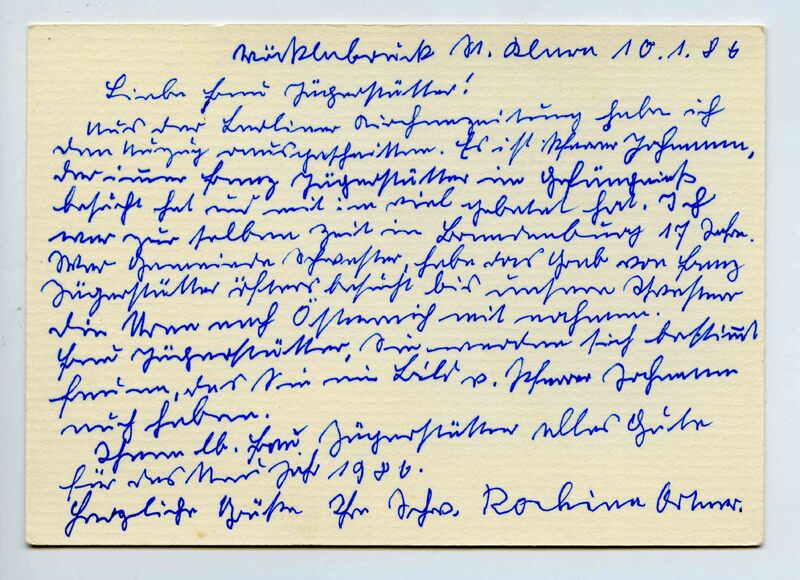 Vöcklabruck St. Klara 10.1.86
Liebe Frau Jägerstätter!
Aus der Berliner Kirchenzeitung habe ich
den Auszug ausgeschnitten. Es ist Pfarrer Jochmann,
der immer Franz Jägerstätter im Gefängniß
besucht hat und mit im viel gebetet hat. Ich
war zur selben Zeit in Brandenburg 17 Jahre.
War Gemeinde Schwester, habe das Grab von Franz
Jägerstätter öfters besucht bis unsere Schwestern
die Urne nach Österreich mit nahmen.
Frau Jägerstätter, Sie werden sich bestimmt
freuen, das Sie ein Bild v. Pfarrer Jochmann
auch haben.
Ihnen lb. Frau Jägerstätter alles Gute
für das Neu Jahr 1986.
Herzliche Grüße Ihre Schw. Rochina Ortner.